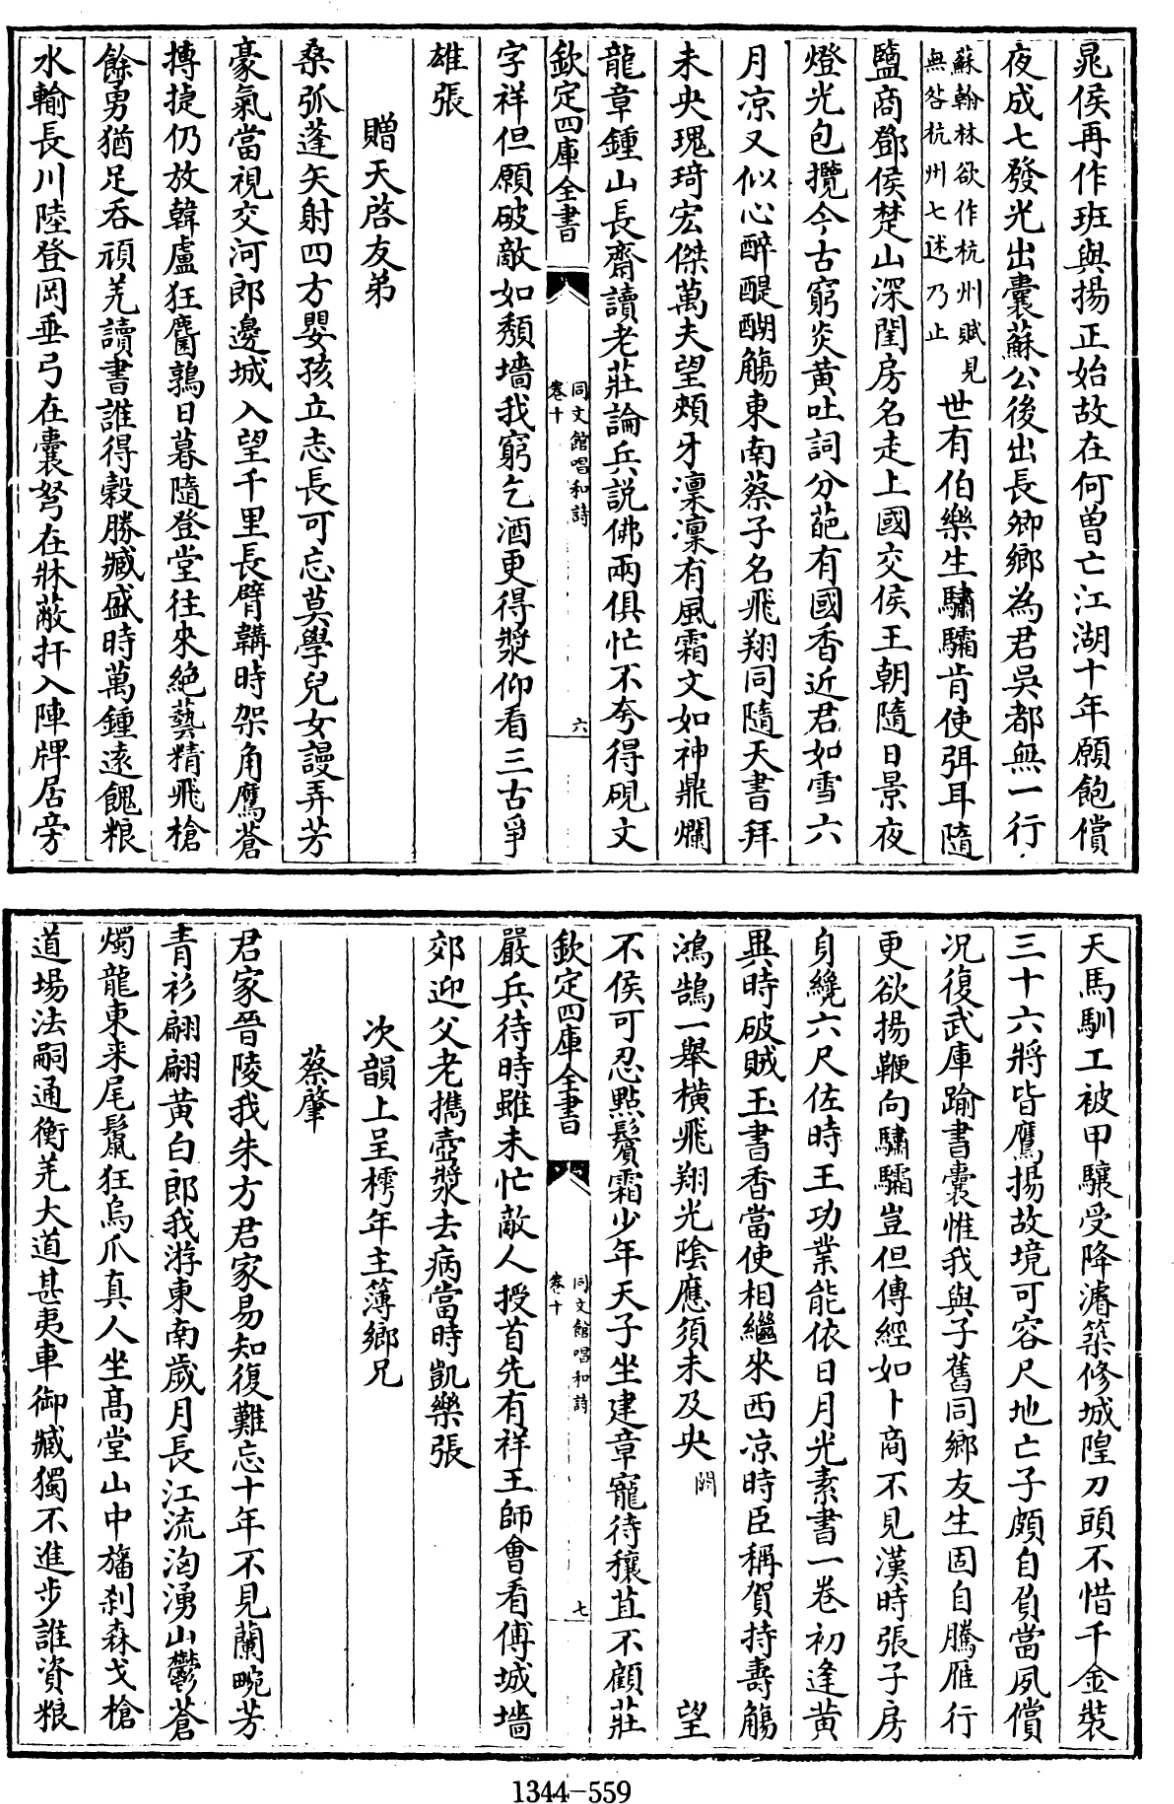 晁侯再作班與揚正始故在何曽亡江湖十年願飽償
夜成七發光出囊蘇公後出長卿鄉為君吳都無一行
蘇翰林欲作杭州賦見
無咎杭州七述乃止
世有伯樂生驌驦肯使弭耳隨
鹽商鄧侯楚山深閨房名走上國交侯王朝隨日景夜
燈光包攬今古窮炎黄吐詞分葩有國香近君如雪六
月凉又似心醉醍醐觴東南蔡子名飛翔同隨天書拜
未央瑰琦宏傑萬夫望頰牙凜凜有風霜文如神鼎爛
龍章鍾山長齋讀老莊論兵説佛兩俱忙不夸得硯文
欽定四庫全書
同文館唱和詩
卷十
六
字祥但願破敵如頽墻我窮乞酒更得漿仰看三古爭
雄張
贈天啓友弟
桑弧蓬矢射四方嬰孩立志長可忘莫學兒女謾弄芳
豪氣當視交河郎邊城入望千里長臂韝時架角鷹蒼
搏捷仍放韓盧狂麕鶉日暮隨登堂往來絶藝精飛槍
餘勇猶足吞頑羌讀書誰得穀勝臧盛時萬鍾逺餽粮
水輸長川陸登岡垂弓在囊弩在牀蔽扞入陣牌居旁
天馬馴工被甲驤受降濬築修城隍刀頭不惜千金裝
三十六將皆鷹揚故境可容尺地亡子頗自負當夙償
况復武庫踰書囊惟我與子舊同鄉友生固自騰雁行
更欲揚鞭向驌驦豈但傳經如卜商不見漢時張子房
身纔六尺佐時王功業能依日月光素書一巻初逢黄
異時破賊玉書香當使相繼來西凉時臣稱賀持壽觴
鴻鵠一舉横飛翔光陰應須未及央
闕
望
不侯可忍點鬢霜少年天子坐建章寵待穰苴不顧莊
欽定四庫全書
同文館唱和詩
卷十
七
嚴兵待時雖未忙敵人授首先有祥王師會看傅城墻
郊迎父老携壺漿去病當時凱樂張
次韻上呈樗年主簿鄉兄
蔡肇
君家晉陵我朱方君家易知復難忘十年不見蘭畹芳
青衫翩翩黄白郎我游東南歲月長江流洶湧山鬱蒼
燭龍東來尾鬛狂烏爪真人坐髙堂山中旛刹森戈槍
道場法嗣通衡羌大道甚夷車御臧獨不進步誰資粮
1344-559